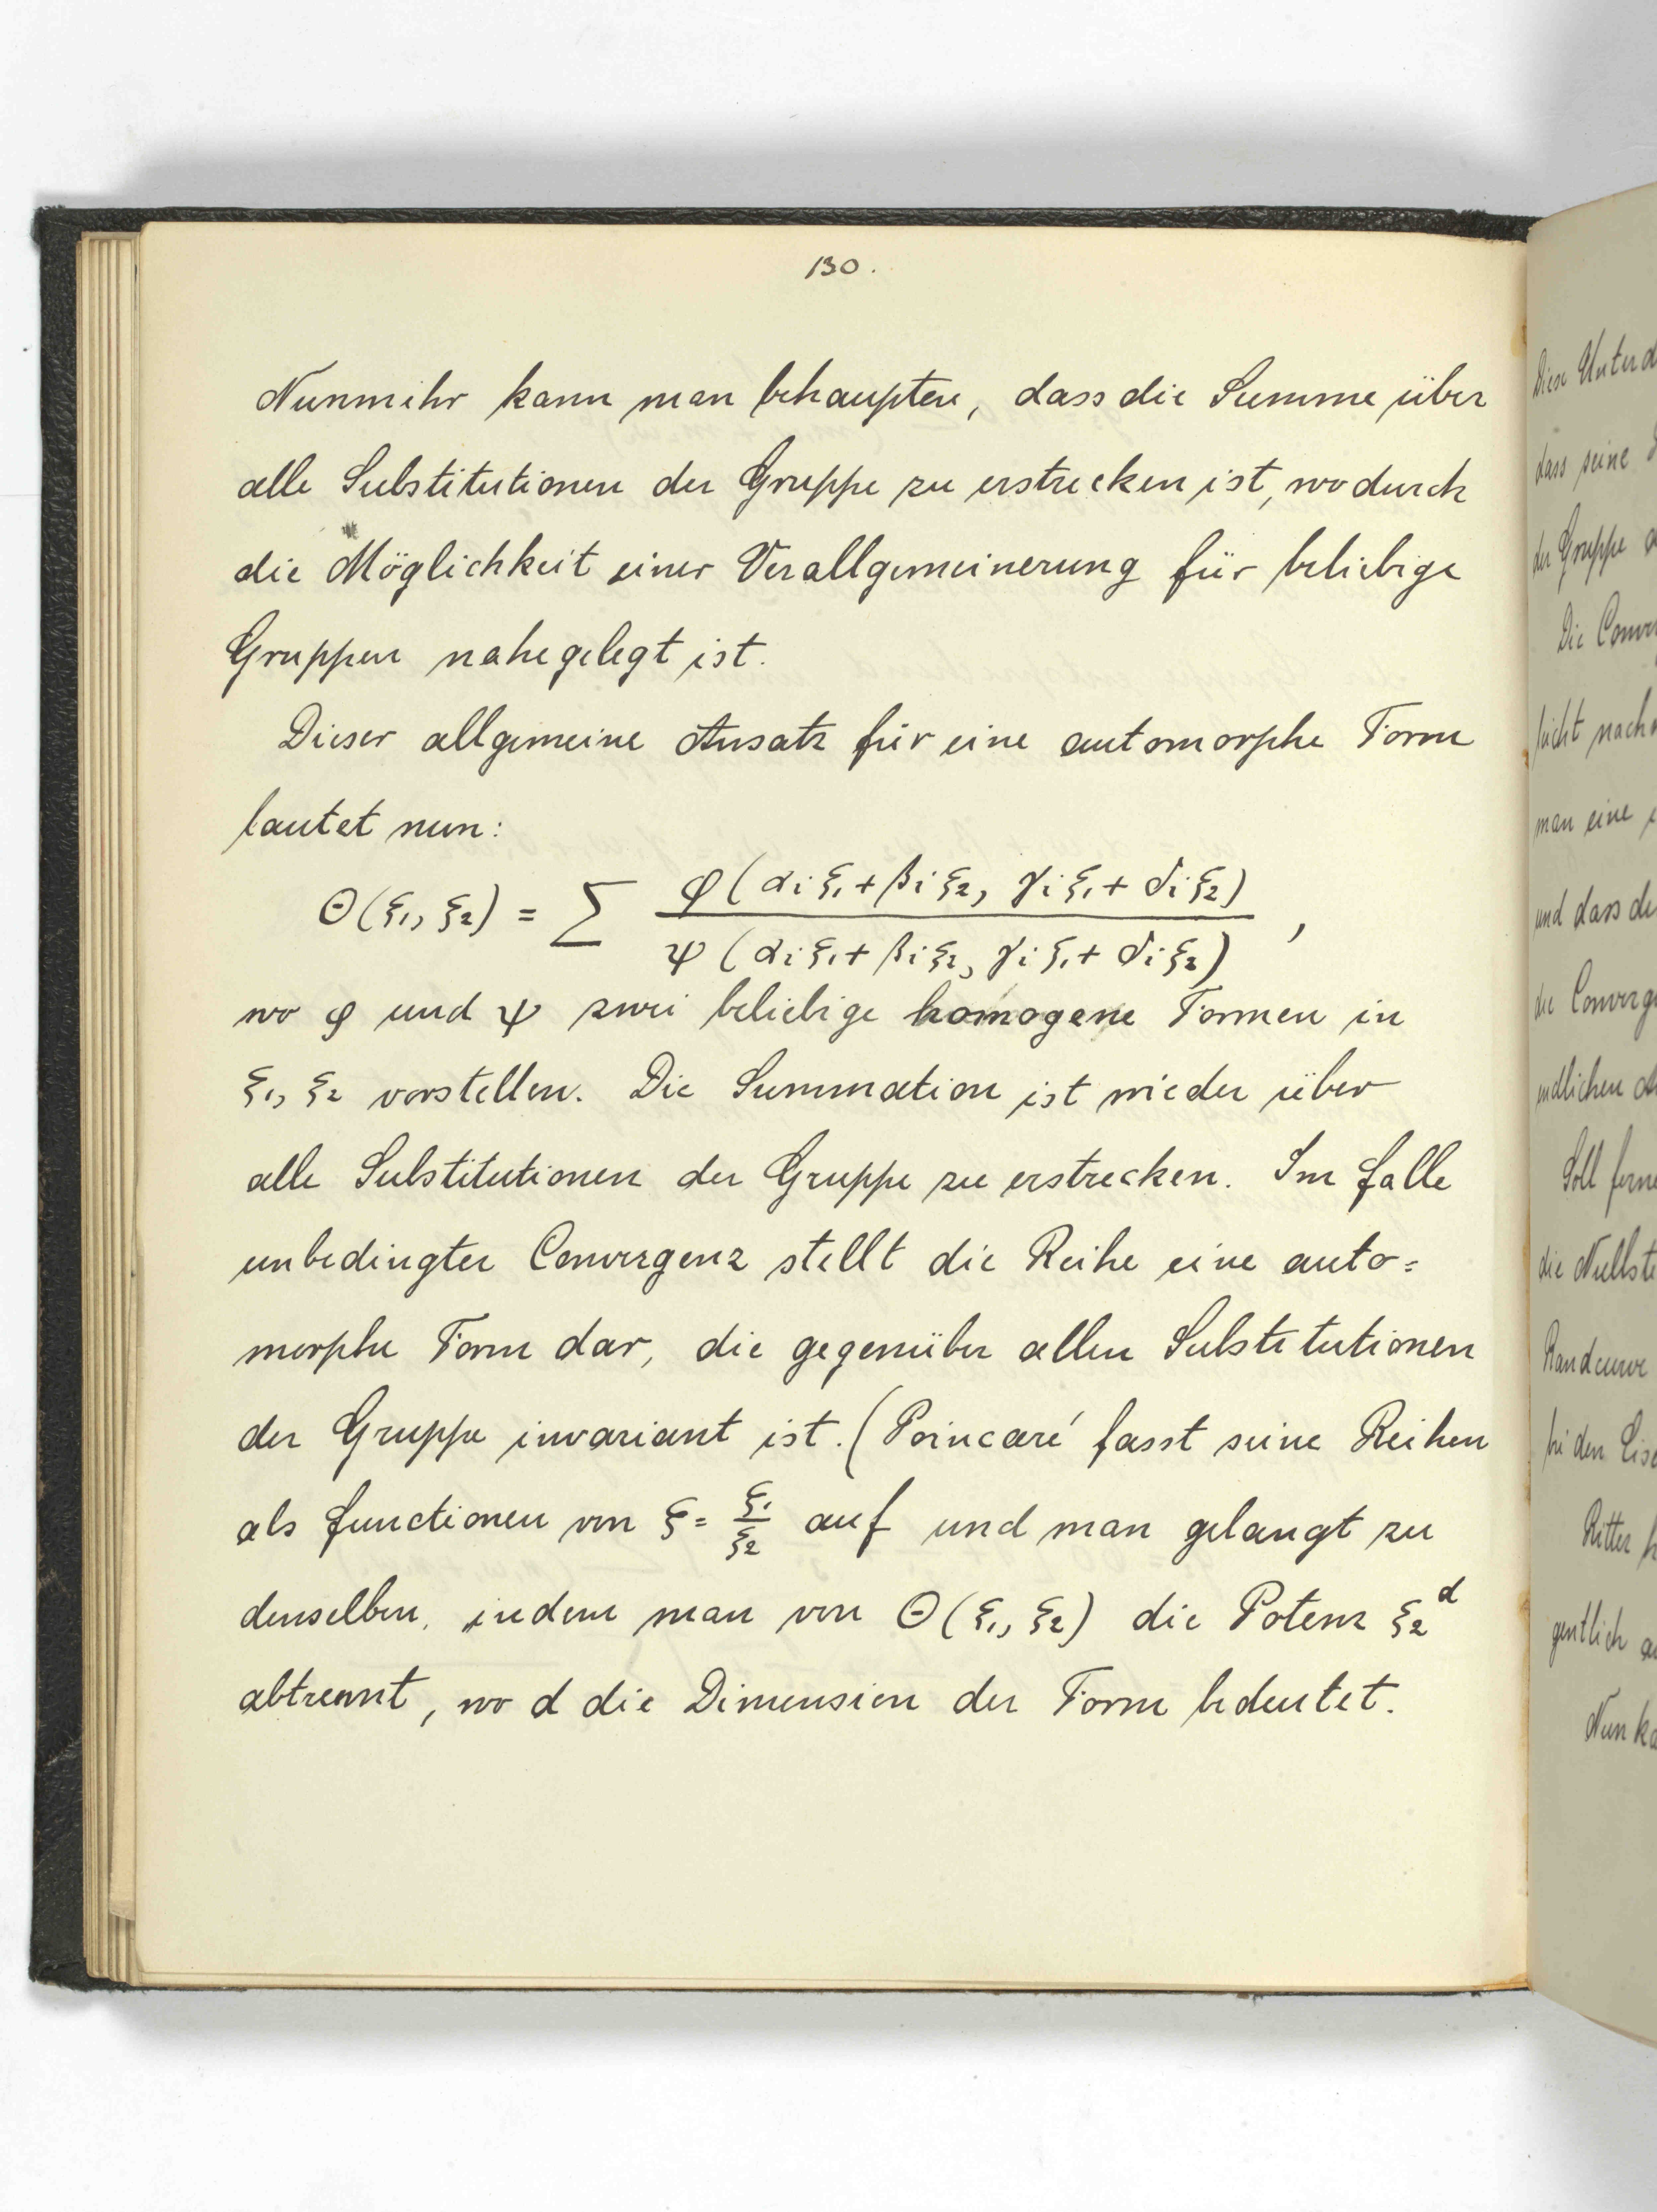 130.
Nunmehr kann man behaupten, dass die Summe über
alle Substitutionen der Gruppe zu erstrecken ist, wodurch
die Möglichkeit einer Verallgemeinerung für beliebige
Gruppen nahegelegt ist.
Dieser allgemeine Ansatz für eine automorphe Form
lautet nun:
Θ(ξ₁, ξ₂) = ∑ φ(αᵢξ₁+βᵢξ₂, γᵢξ₁+δᵢξ₂) / ψ(αᵢξ₁+βᵢξ₂, γᵢξ₁+δᵢξ₂) ,
wo φ und ψ zwei beliebige homogene Formen in
ξ₁, ξ₂ vorstellen. Die Summation ist wieder über
alle Substitutionen der Gruppe zu erstrecken. Im Falle
unbedingter Convergenz stellt die Reihe eine auto=
morphe Form dar, die gegenüber allen Substitutionen
der Gruppe invariant ist. (Poincaré fasst seine Reihen
als Functionen von ξ = ξ₁/ξ₂ auf und man gelangt zu
denselben, indem man von Θ(ξ₁, ξ₂) die Potenz ξ₂ᵈ
abtrennt, wo d die Dimension der Form bedeutet.
Diese
dass seine
der Gruppe
Die
man eine
und dass
die
Soll
die
bei den
Ritter
Nun